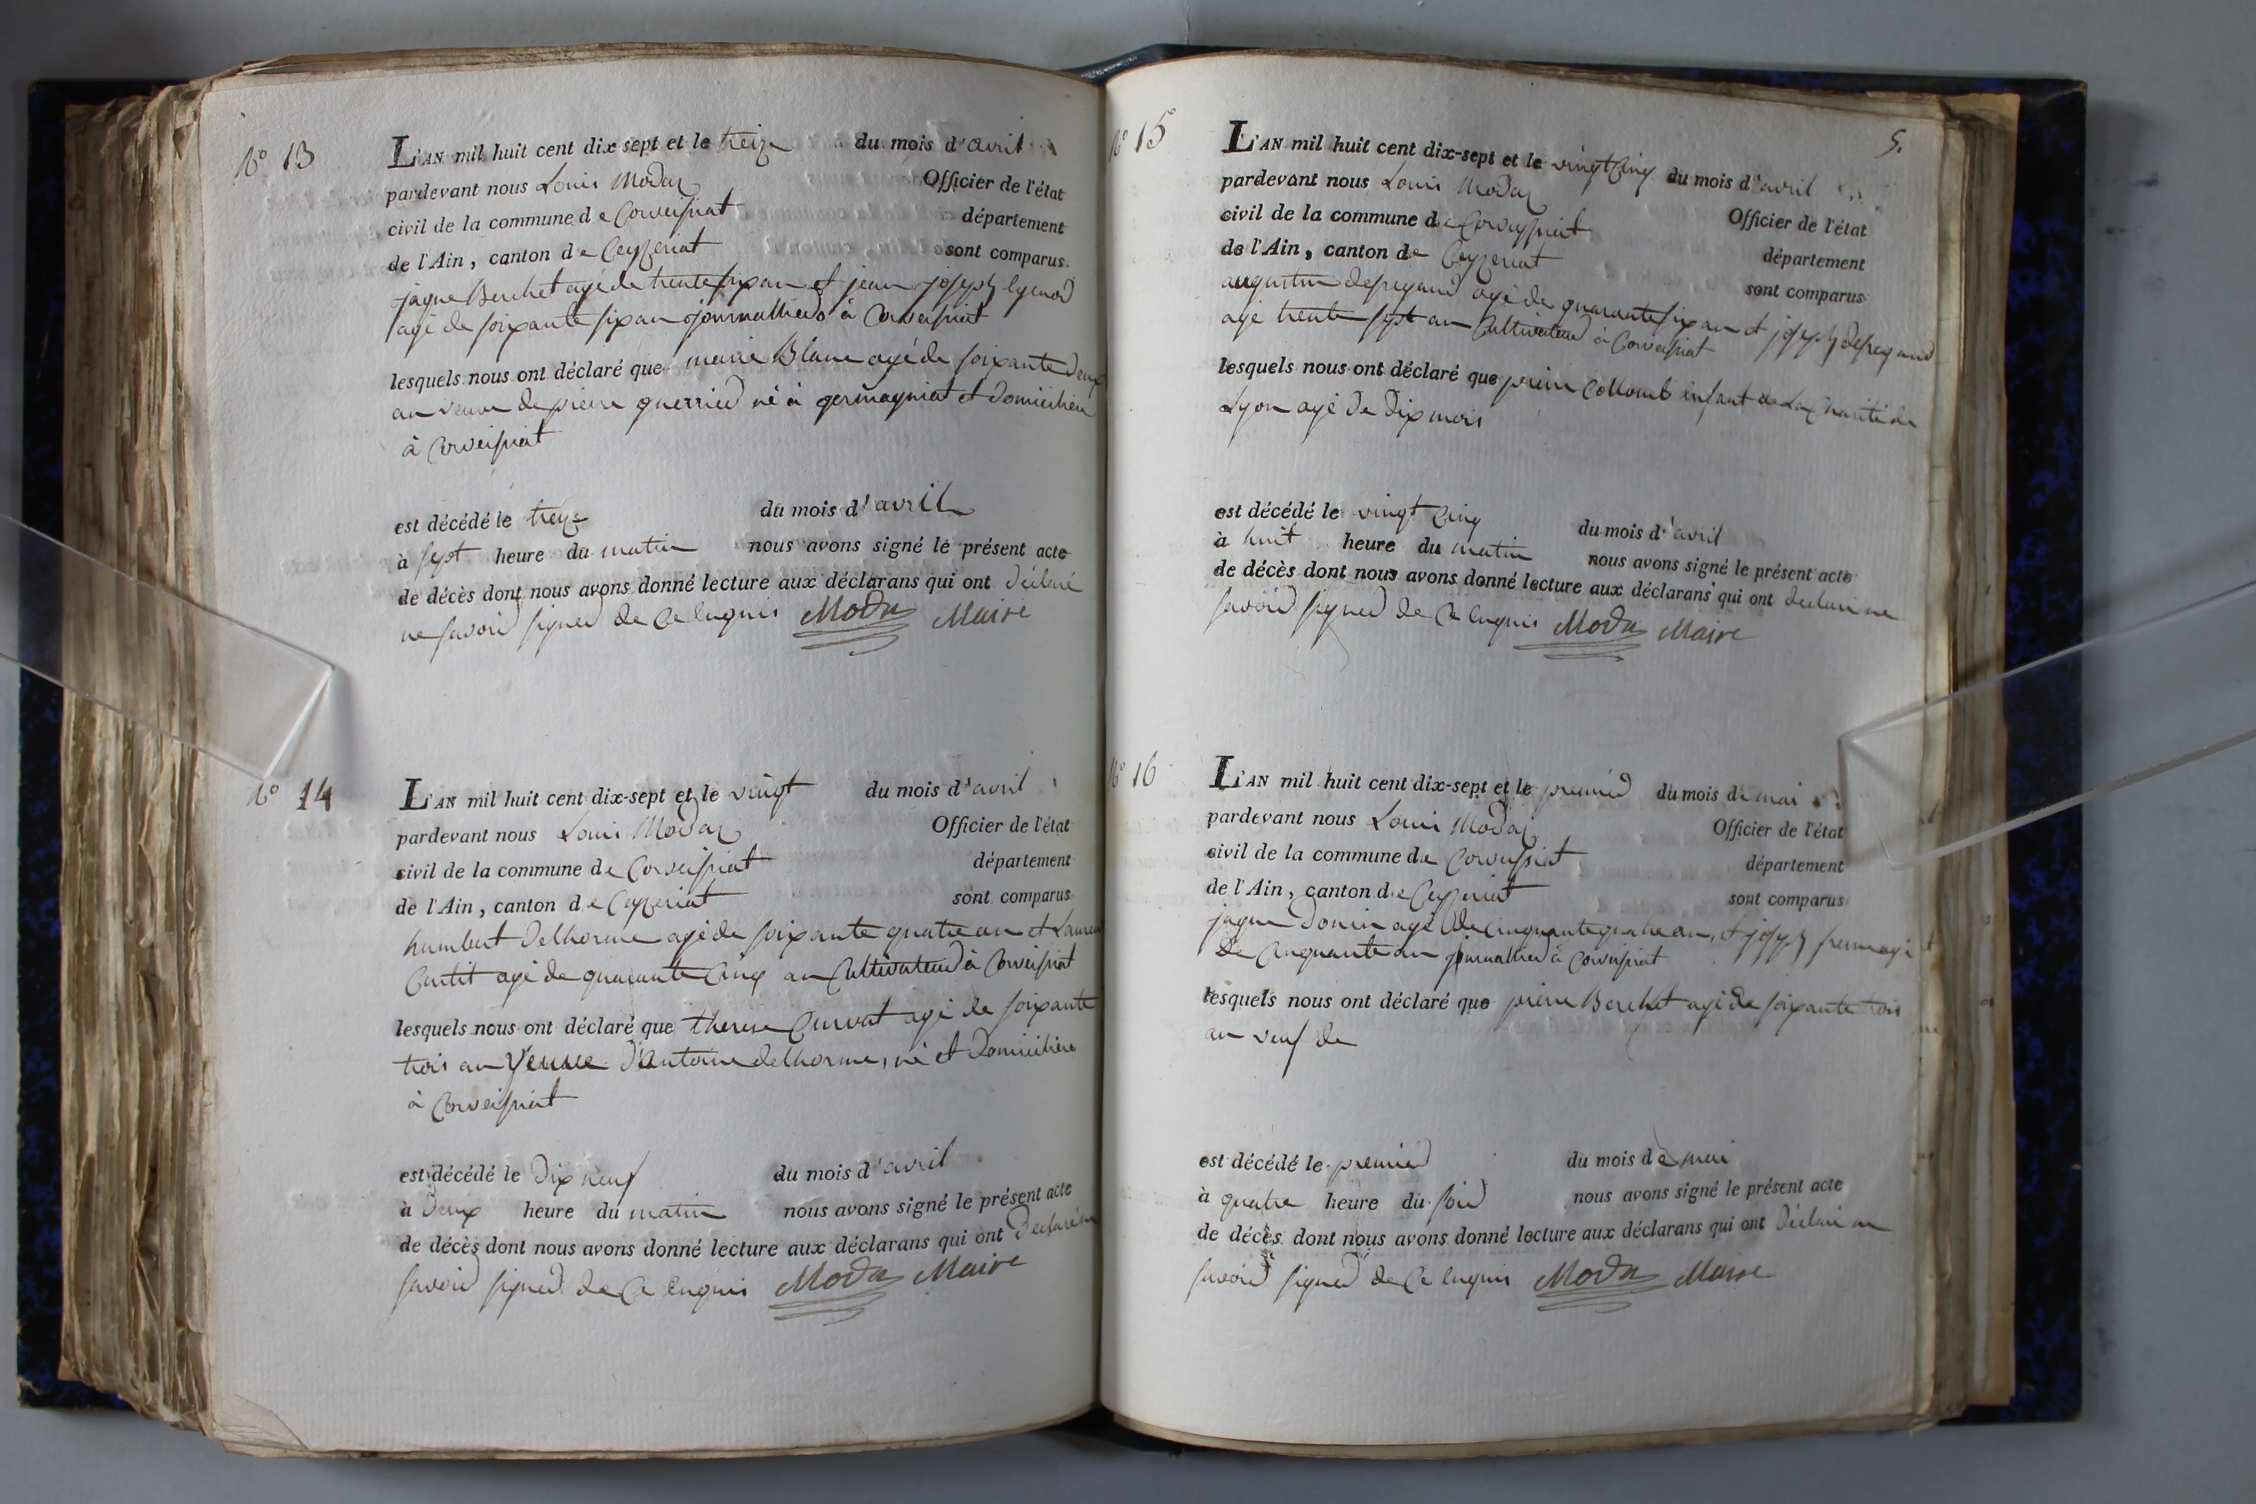 N° 13
L'AN mil huit cent dix sept et le treize du mois d'avril
pardevant nous Louis Modas Officier de l'état
civil de la commune de Corveissiat département
de l'Ain, canton de Ceyzeriat sont comparus
jaque Berchet agé de trente six an et jean joseph
agé de soixante six an journallied à Corveissiat
lesquels nous ont déclaré que marie Blanc agé de soixante deux
an veuve de pierre guerried né à germagniat et domicilieé
à Corveissiat
est décédé le treize du mois d'avril
à sept heure du matin nous avons signé le présent acte
de décès dont nous avons donné lecture aux déclarans qui ont déclaré
ne savoid signed de ce enquis Modas Maire
N° 14
L'AN mil huit cent dix-sept et le vingt du mois d'avril
pardevant nous Louis Modas Officier de l'état
civil de la commune de Corveissiat département
de l'Ain, canton de Ceyzeriat sont comparus
humbert Delhorme agé de soixante quatre an et Laurent
Curtit agé de quarante Cinq an Cultivateud à Corveissiat
lesquels nous ont déclaré que therese Curvat agé de soixante
trois an Veuve d'Antoine delhorme, né et Domiciliée
à Corveissiat
est décédé le Dix neuf du mois d'avril
à Deux heure du matin nous avons signé le présent acte
de décès dont nous avons donné lecture aux déclarans qui ont Declaré ne
savoid signed de Ce enquis Modas Maire
N° 15
5.
L'AN mil huit cent dix-sept et le vingt Cinq du mois d'avril
pardevant nous Louis Modas Officier de l'état
civil de la commune de Corveyssiat département
de l'Ain, canton de Ceyzeriat sont comparus
augustin desregaud agé de quarante six an et joseph desregaud
agé trente sept an Cultivateud à Corveissiat
lesquels nous ont déclaré que pierre Collomb enfant de La Charité de
Lyon agé de Dix mois
est décédé le vingt Cinq du mois d'avril
à huit heure du matin nous avons signé le présent acte
de décès dont nous avons donné lecture aux déclarans qui ont declaré ne
savoid signed de Ce enquis Modas Maire
N° 16
L'AN mil huit cent dix-sept et le premied du mois de mai
pardevant nous Louis Modas Officier de l'état
civil de la commune de Corveissiat département
de l'Ain, canton de Ceyzeriat sont comparus
jaque Donin agé de Cinquante quatre an, et joseph agé
De Cinquante an journallied à Corveissiat
lesquels nous ont déclaré que pierre Berchet agé de soixante trois
an veuf de
est décédé le premied du mois de mai
à quatre heure du soid nous avons signé le présent acte
de décès dont nous avons donné lecture aux déclarans qui ont déclaré ne
savoid signed de Ce enquis Modas Maire